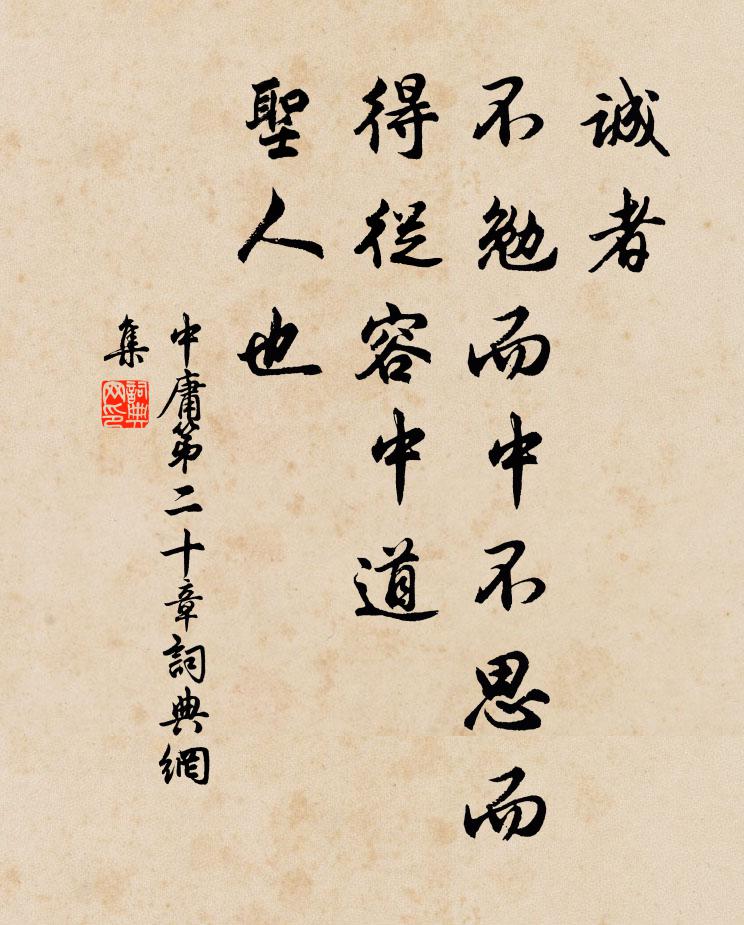 誠者
不勉而中不思而
得從容中道
聖人也
中庸第二十章詞典網
集
詞典
网印